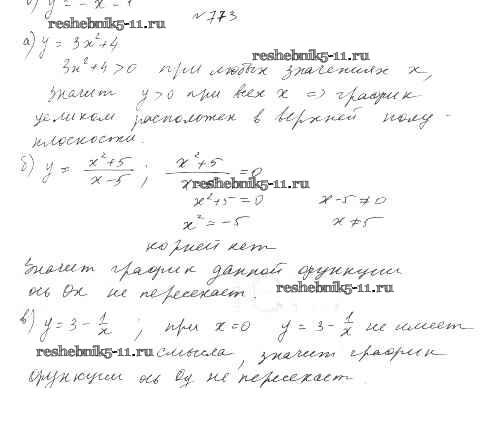 б) y = -x - 1
reshebnik5-11.ru
№773
а) y = 3x²+4
reshebnik5-11.ru
3x²+4>0 при любых значениях x,
значит y>0 при всех x => график
целиком расположен в верхней полу-
плоскости.
б) y = (x²+5)/(x-5) ; (x²+5)/x =0
reshebnik5-11.ru
x²+5=0 x-5≠0
x²=-5 x≠5
корней нет
Значит график данной функции
ось Ox не пересекает.
reshebnik5-11.ru
в) y=3-1/x ; при x=0 y=3-1/x не имеет
reshebnik5-11.ru смысла, значит график
функции ось Oy не пересекает.